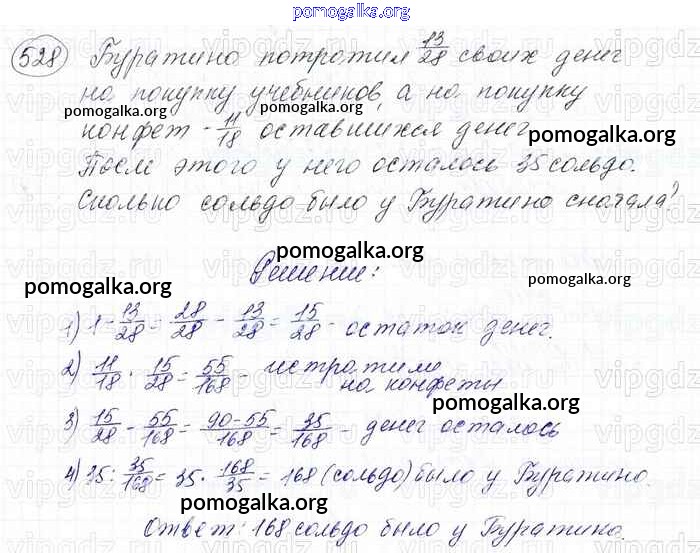 pomogalka.org
528) Буратино потратил 13/28 своих денег
на покупку учебников, а на покупку
pomogalka.org pomogalka.org
конфет - 11/18 оставшихся денег.
pomogalka.org
После этого у него осталось 35 сольдо.
Сколько сольдо было у Буратино сначала?
pomogalka.org
Решение:
pomogalka.org
1) 1 - 13/28 = 28/28 - 13/28 = 15/28 - остаток денег.
2) 11/18 · 15/28 = 55/168 - истратили
на конфеты
pomogalka.org
3) 15/28 - 55/168 = 90-55/168 = 35/168 - денег осталось
4) 35 : 35/168 = 35 · 168/35 = 168 (сольдо) было у Буратино.
pomogalka.org pomogalka.org
Ответ: 168 сольдо было у Буратино.